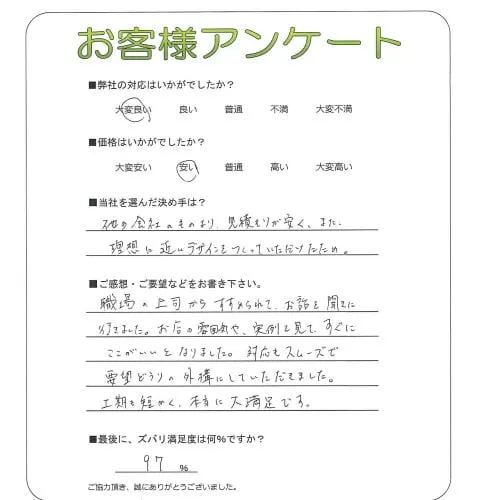 お客様アンケート
■弊社の対応はいかがでしたか？
大変良い 良い 普通 不満 大変不満
■価格はいかがでしたか？
大変安い 安い 普通 高い 大変高い
■当社を選んだ決め手は？
他の会社のものより、見積もりが安く、また、
理想に近いデザインをつくっていただけたため。
■ご感想・ご要望などをお書き下さい。
職場の上司からすすめられて、お話を聞きに
行きました。お店の雰囲気や、実例を見て、すぐに
ここがいいとなりました。対応もスムーズで
要望どうりの外構にしていただきました。
工期も短かく、本当に大満足です。
■最後に、ズバリ満足度は何％ですか？
97 ％
ご協力頂き、誠にありがとうございました。